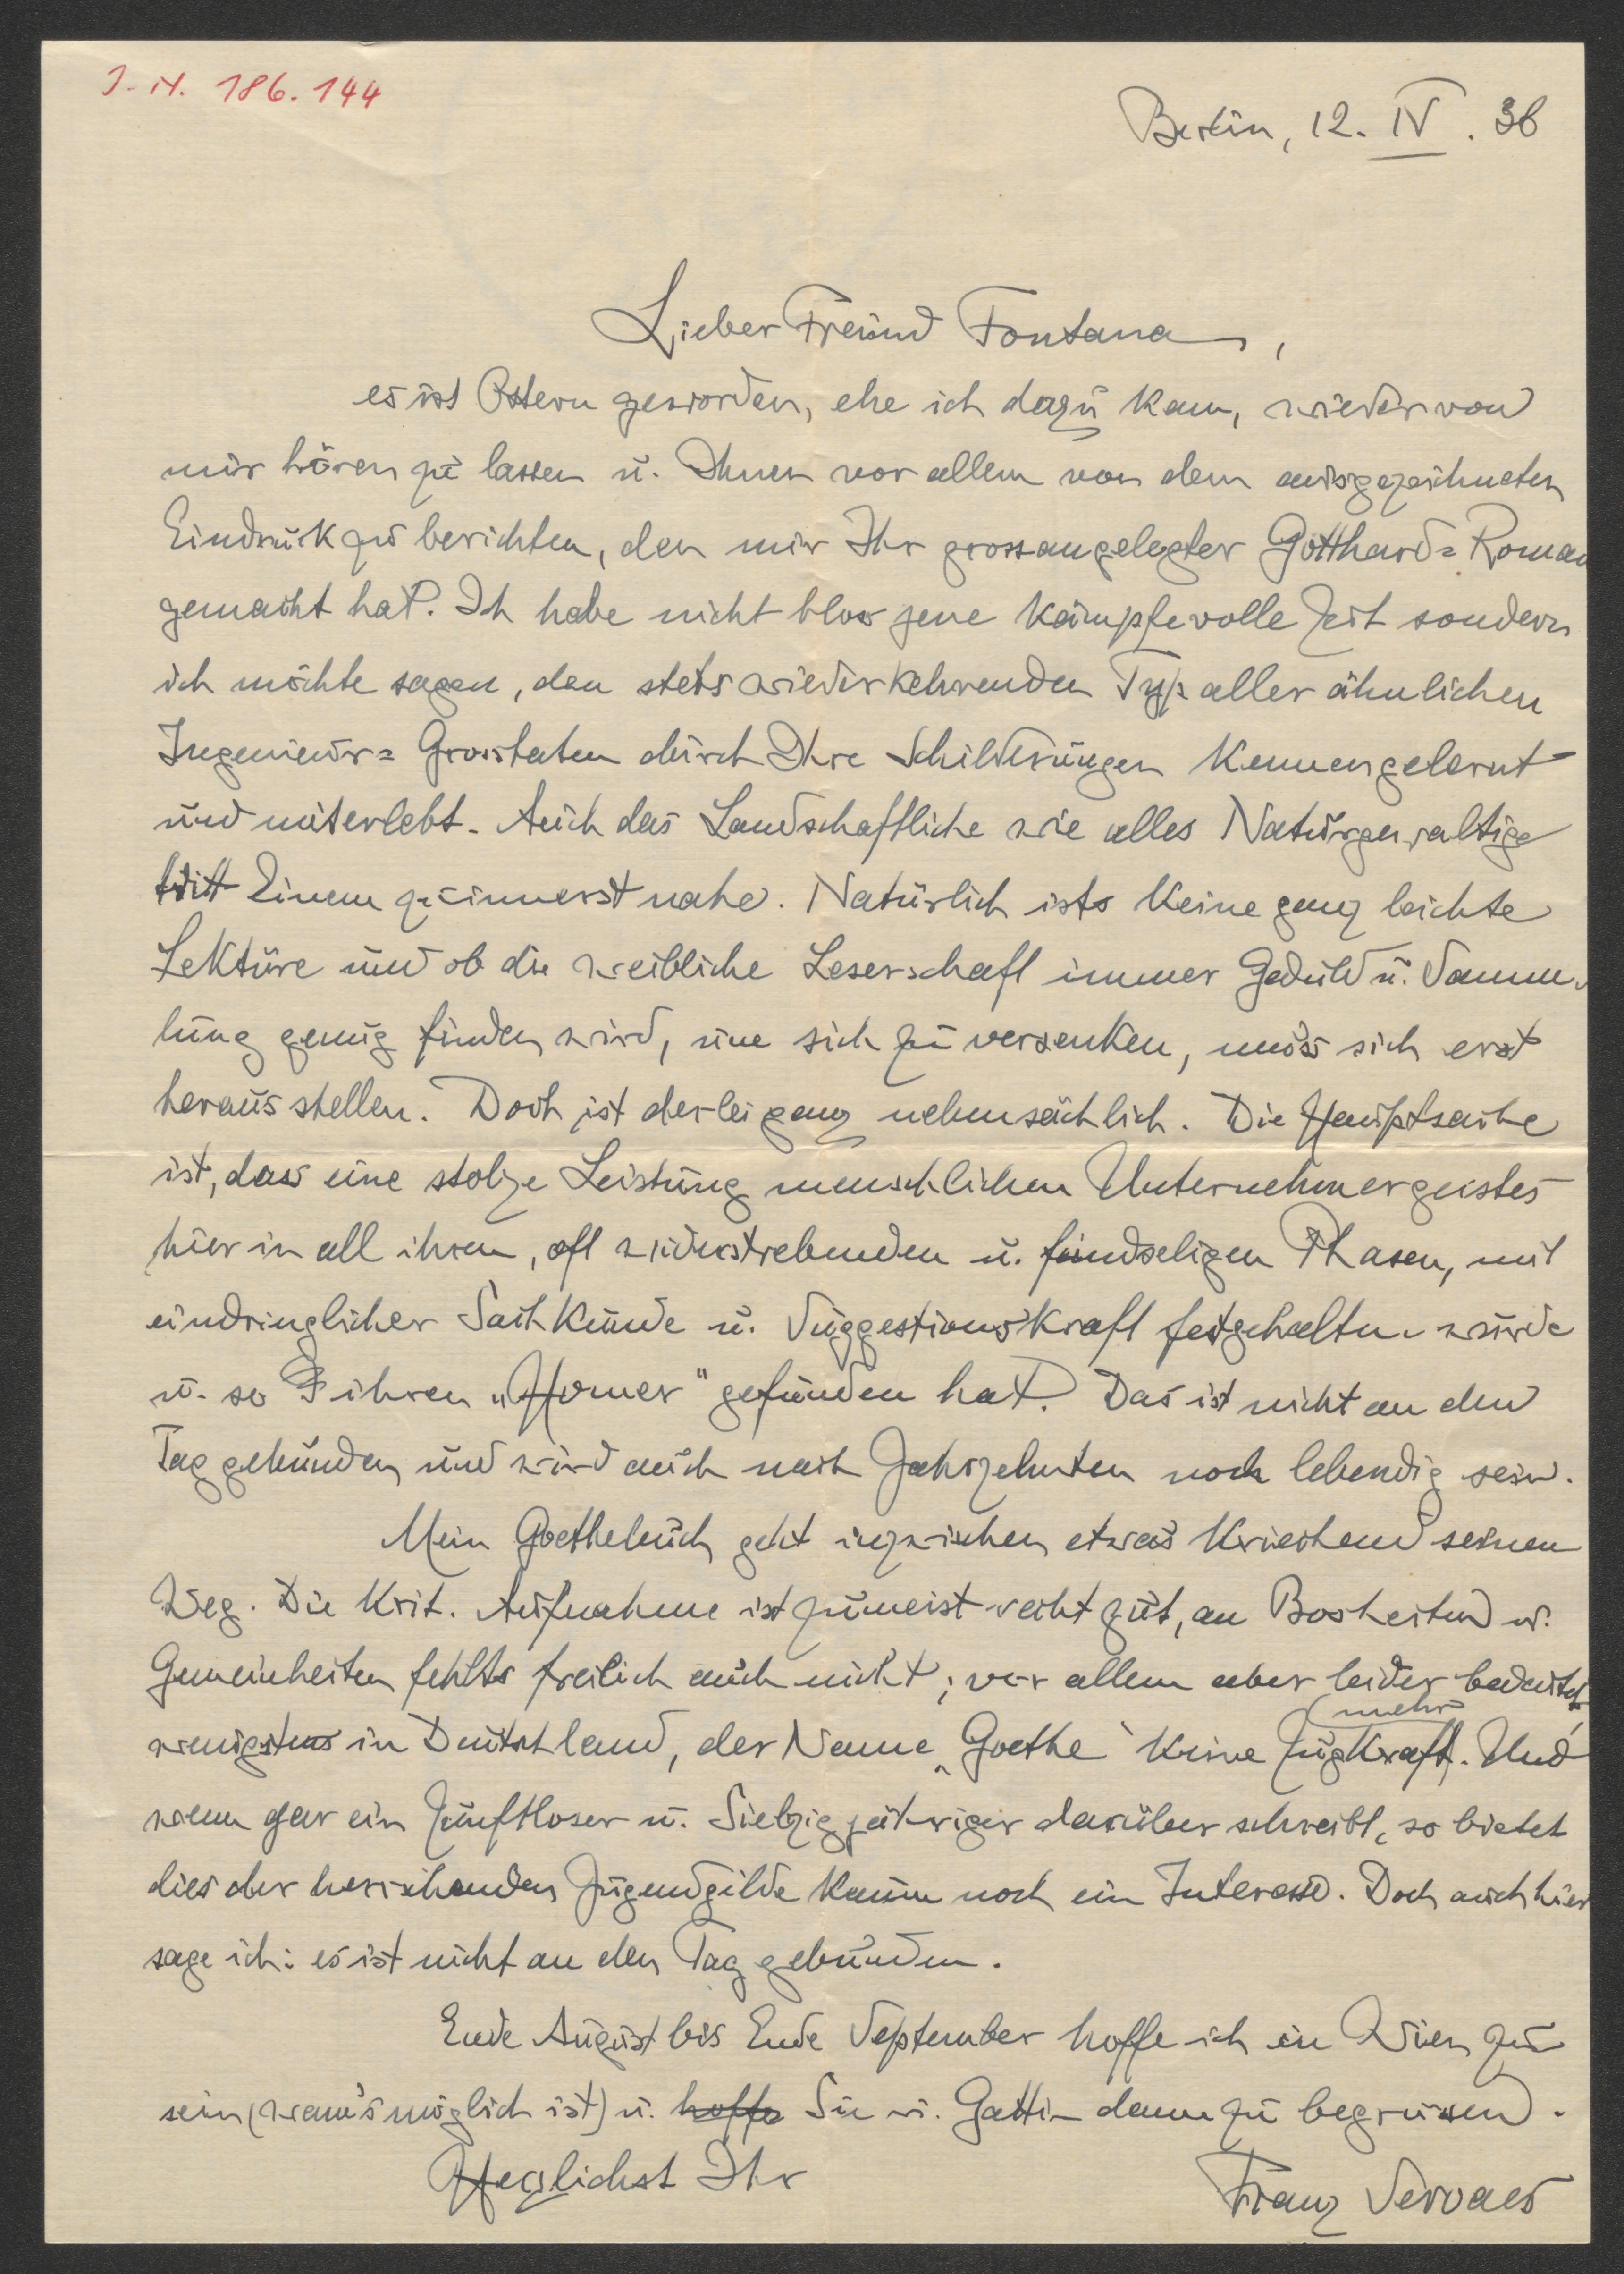 J. N. 186.144
Berlin, 12. IV. 36
Lieber Freund Fontana,
es ist Ostern geworden, ehe ich dazu kam, wieder von
mir hören zu lassen u. Ihnen vor allem von dem ausgezeichneten
Eindruck zu berichten, den mir Ihr grossangelegter Gotthard=Roman
gemacht hat. Ich habe nicht blos jene kämpfevolle Zeit sondern
ich möchte sagen, den stets wiederkehrenden Typ aller ähnlichen
Ingenieur=Grosstaten durch Ihre Schilderungen kennengelernt
und miterlebt. Auch das Landschaftliche wie alles Naturgewaltige
tritt Einem zuinnerst nahe. Natürlich ists keine ganz leichte
Lektüre und ob die weibliche Leserschaft immer Geduld u. Samm-
lung genug finden wird, um sich zu versenken, muss sich erst
herausstellen. Doch ist derlei ganz nebensächlich. Die Hauptsache
ist, dass eine stolze Leistung menschlichen Unternehmergeistes
hier in all ihren, oft widerstrebenden u. feindseligen Phasen, mit
eindringlicher Sachkunde u. Suggestionskraft festgehalten wurde
u. so ihren „Homer" gefunden hat. Das ist nicht an den
Tag gebunden und wird auch nach Jahrzehnten noch lebendig sein.
Mein Goethebuch geht inzwischen etwas kriechend seinen
Weg. Die krit. Aufnahme ist zumeist recht gut, an Bosheiten u.
Gemeinheiten fehlts freilich auch nicht; vor allem aber leider bedeutet,
wenigstens in Deutschland, der Name „Goethe" keine Zugkraft mehr. Und
wenn gar ein Zunftloser u. Siebzigjähriger darüber schreibt, so bietet
dies der herrschenden Jugendgilde kaum noch ein Interesse. Doch auch hier
sage ich: es ist nicht an den Tag gebunden.
Ende August bis Ende September hoffe ich in Wien zu
sein (wenn's möglich ist) u. hoffe Sie u. Gattin dann zu begrüssen.
Herzlichst Ihr
Franz Servaes